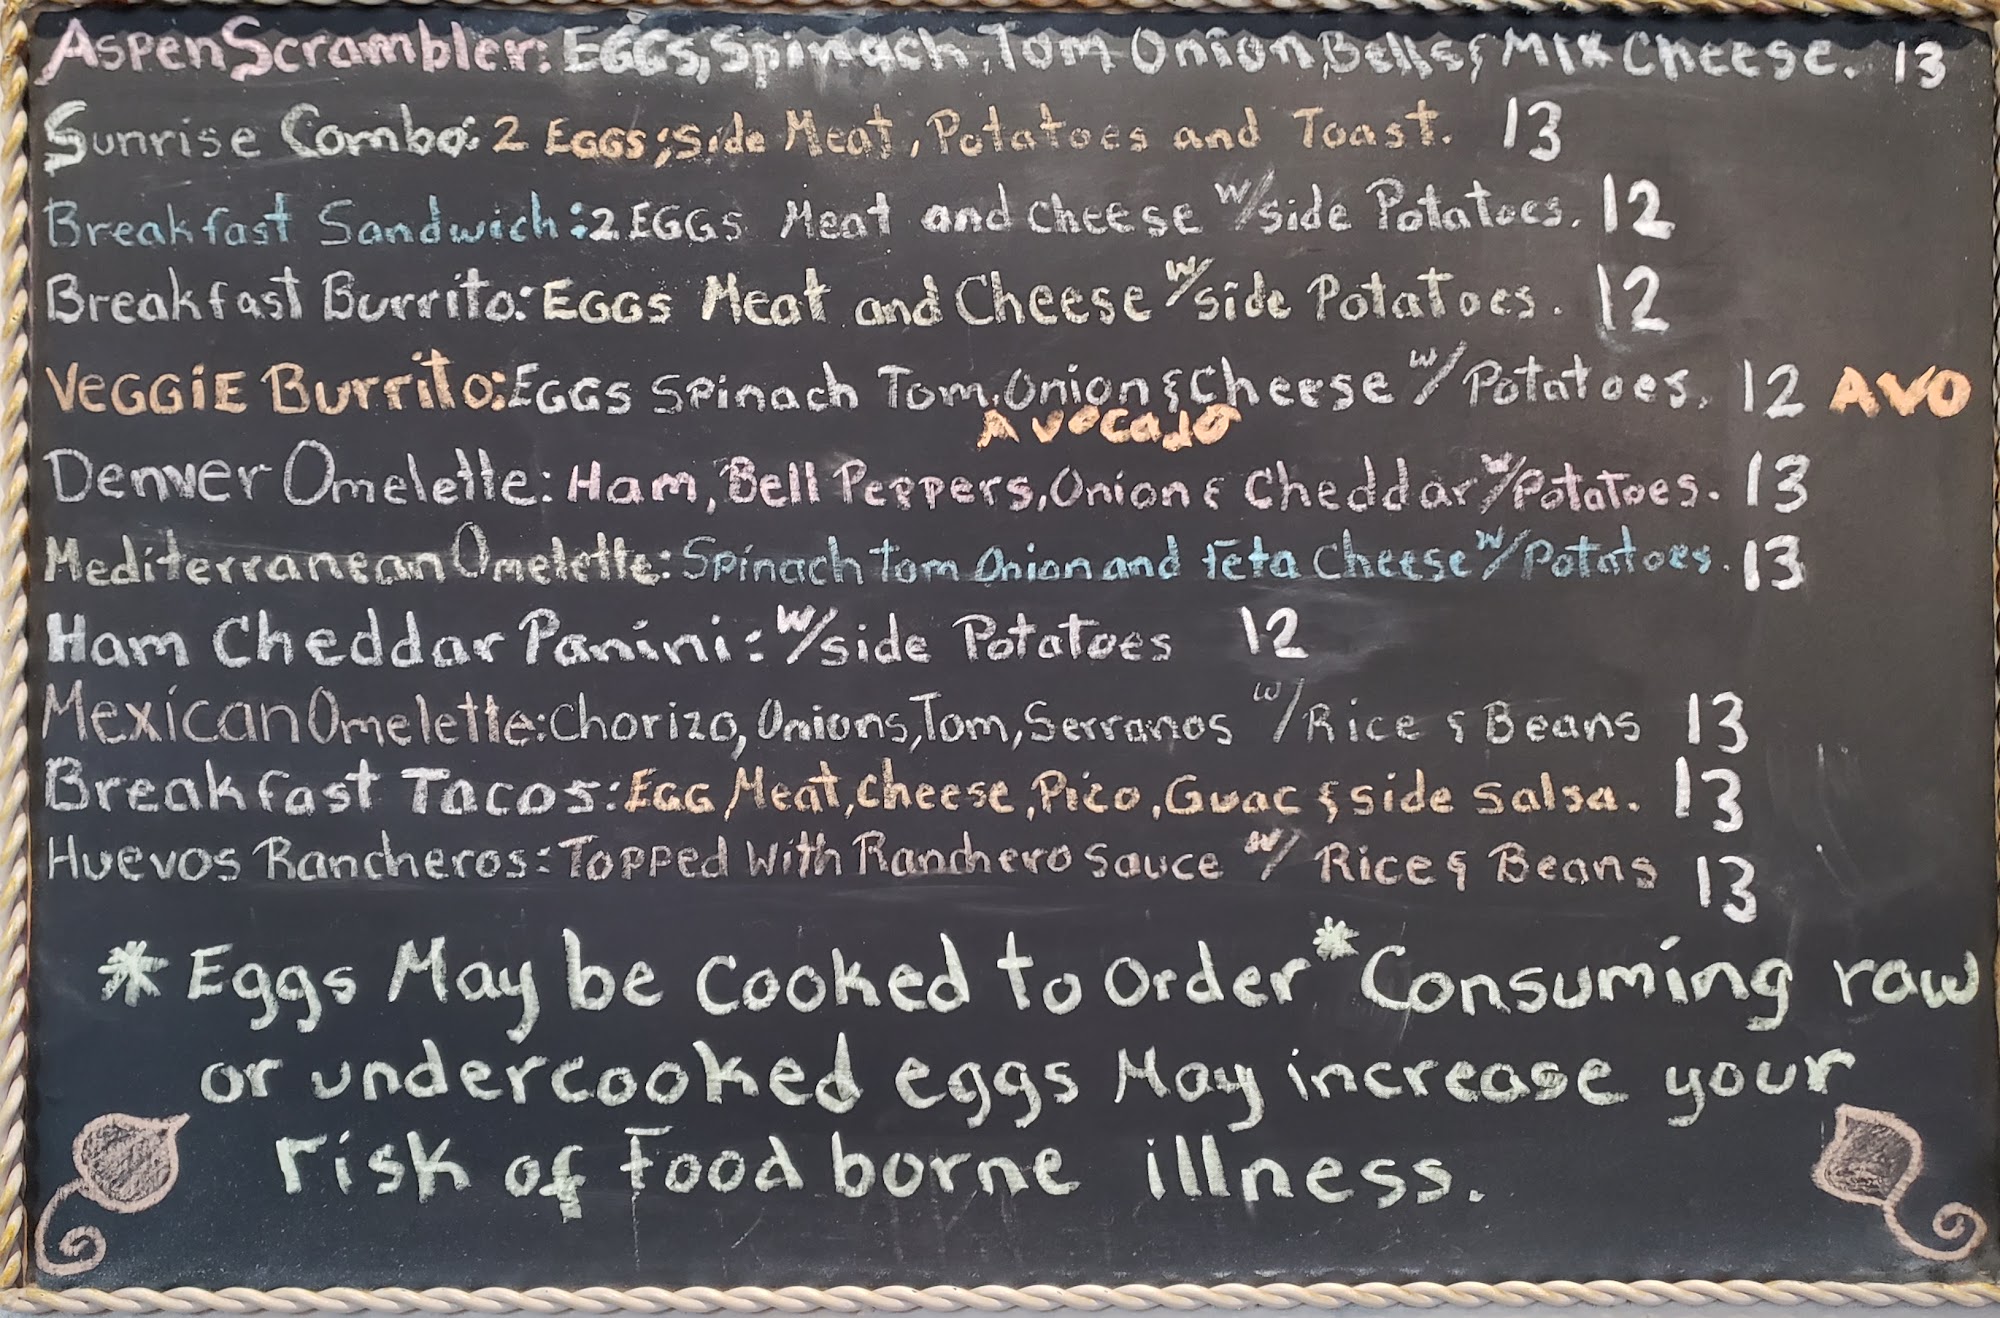 Aspen Scrambler: EGGS, Spinach, Tom Onion, Bells, & Mix Cheese. 13
Sunrise Combo: 2 EGGS, Side Meat, Potatoes and Toast. 13
Breakfast Sandwich: 2 EGGS Meat and Cheese w/side Potatoes. 12
Breakfast Burrito: EGGS Meat and Cheese w/side Potatoes. 12
VEGGIE Burrito: EGGS Spinach Tom, Onion & Cheese w/Potatoes. 12 AVO
AVOCADO
Denver Omelette: Ham, Bell Peppers, Onion & Cheddar w/Potatoes. 13
Mediterranean Omelette: Spinach Tom Onion and Feta Cheese w/Potatoes. 13
Ham Cheddar Panini: w/side Potatoes 12
Mexican Omelette: Chorizo, Onions, Tom, Serranos w/Rice & Beans 13
Breakfast Tacos: EGG, Meat, Cheese, Pico, Guac & side Salsa. 13
Huevos Rancheros: Topped With Ranchero Sauce w/ Rice & Beans 13
*Eggs May be Cooked to Order *Consuming raw
or undercooked eggs May increase your
risk of Food borne illness.